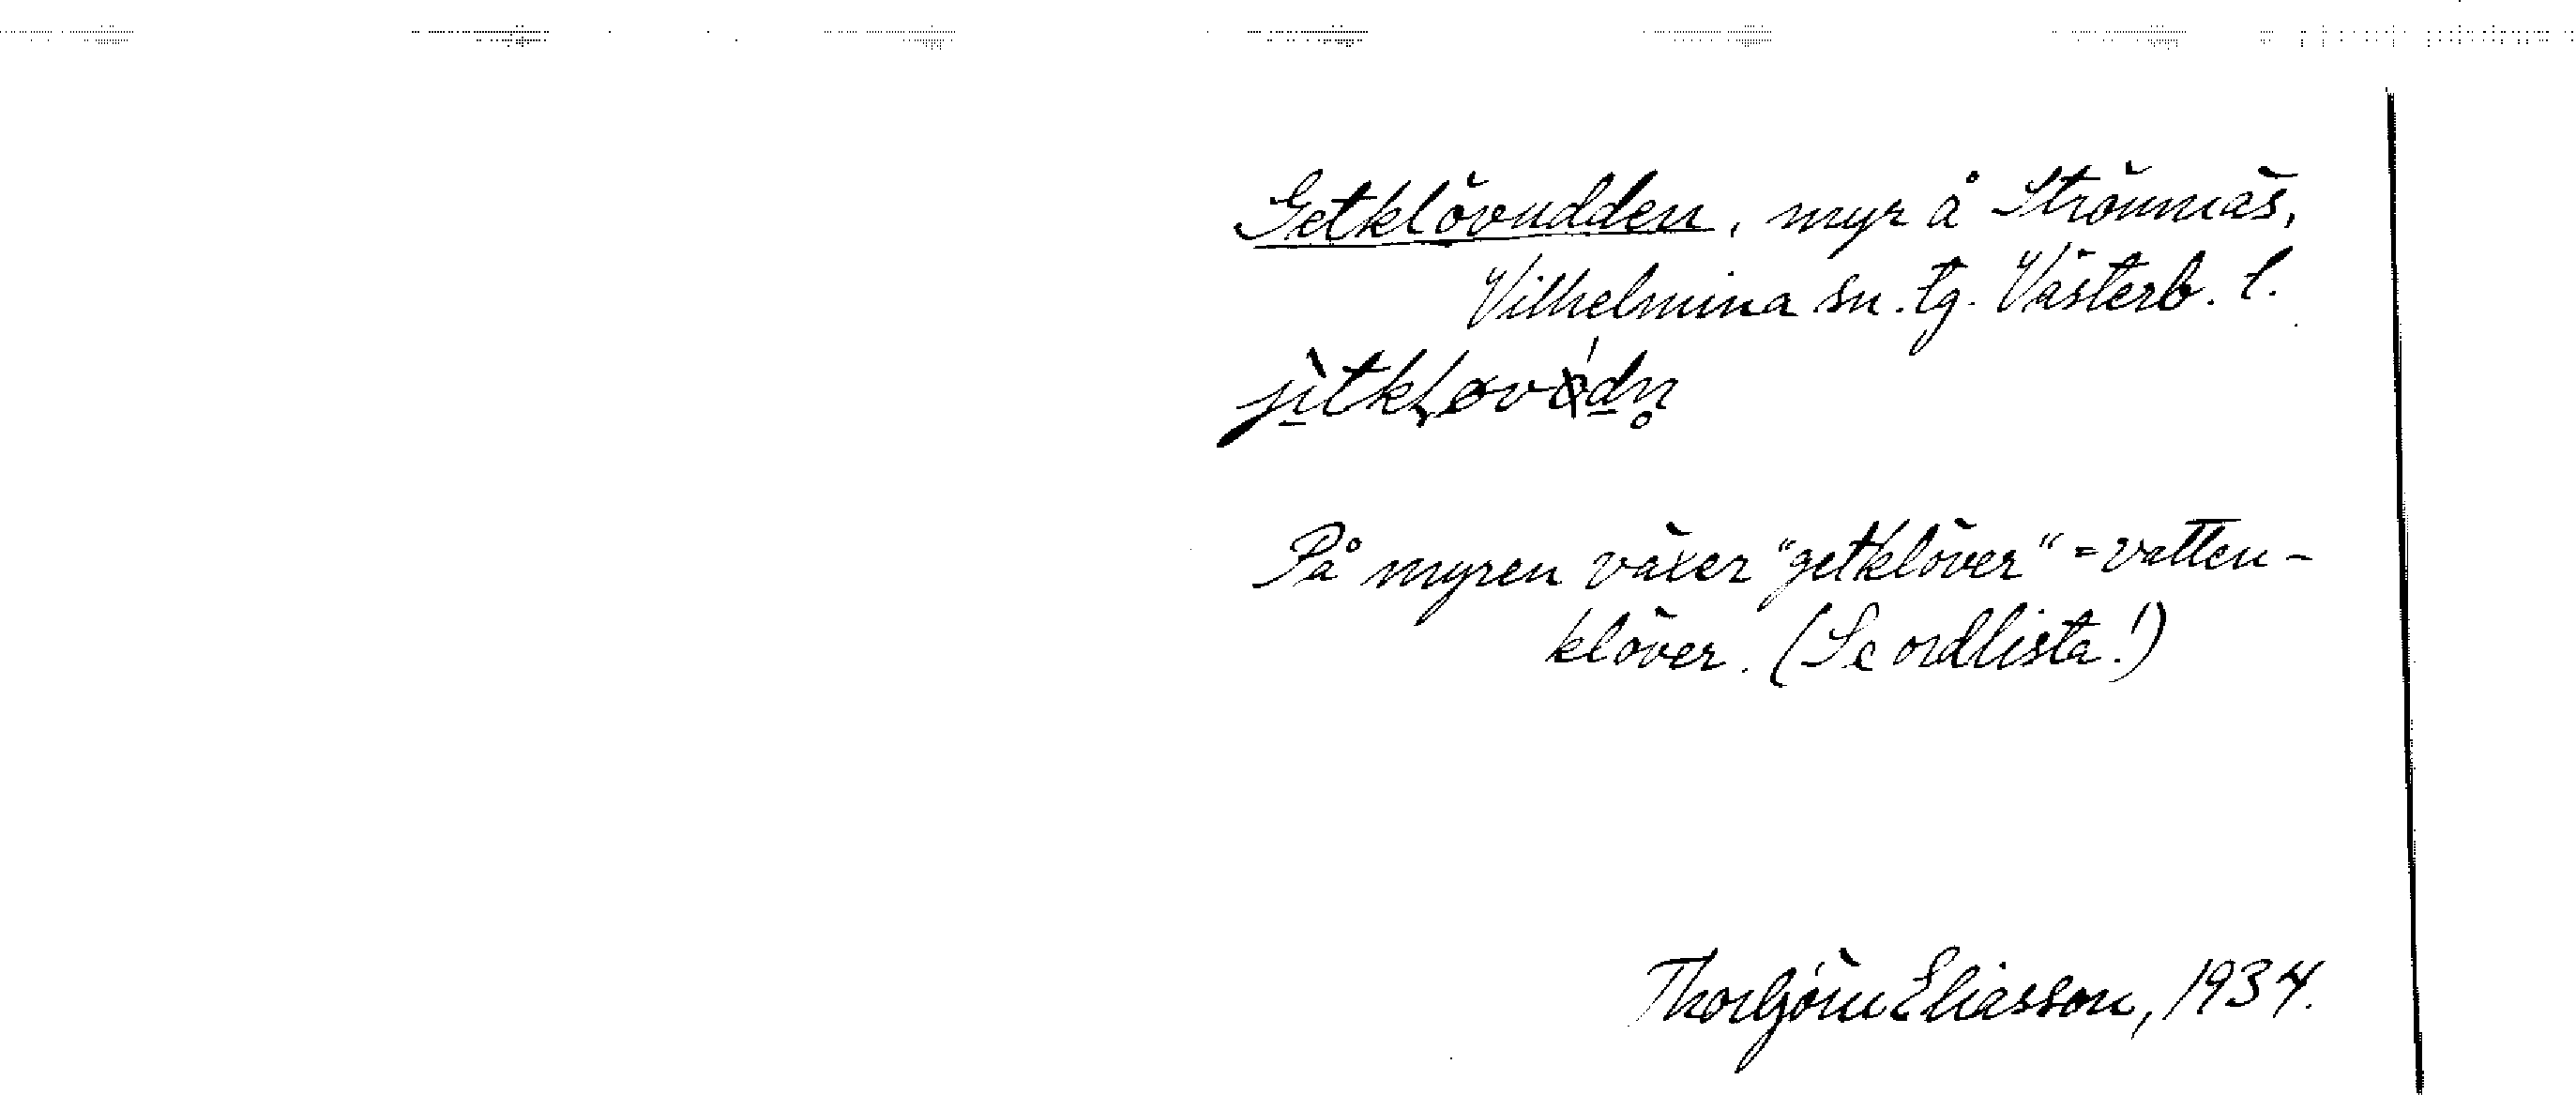 Getklövudden, myr å Strömnäs,
Vilhelmina sn. tg. Västerb. l.
På myren växer "getklöver" = vatten-
klöver. (Se ordlista!)
Thorbjörn Eliasson, 1934.